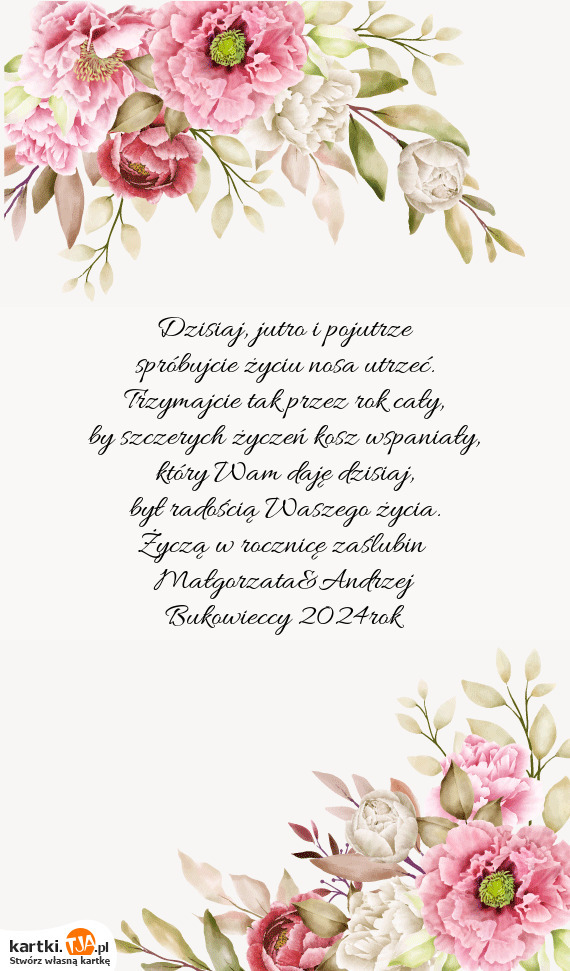 Dzisiaj, jutro i pojutrze
spróbujcie życiu nosa utrzeć.
Trzymajcie tak przez rok cały,
by szczerych życzeń kosz wspaniały,
który Wam daję dzisiaj,
był radością Waszego życia.
Życzą w rocznicę zaślubin
Małgorzata&Andrzej
Bukowieccy 2024rok
kartki.TJA.pl
Stwórz własną kartkę